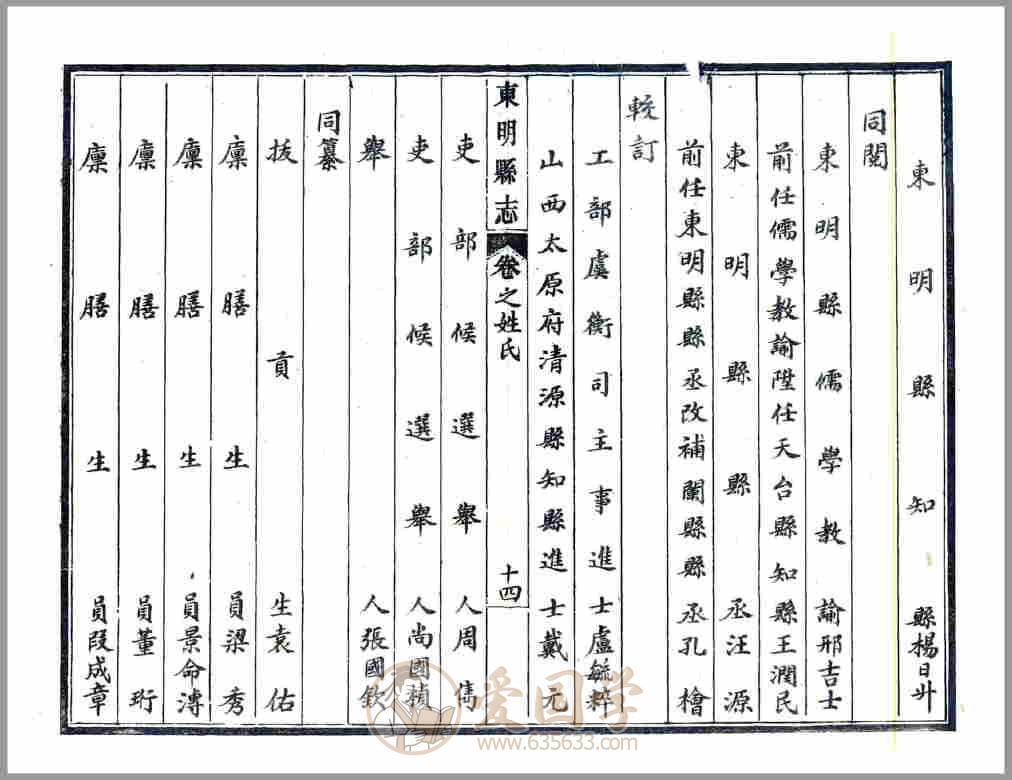 東明縣知縣楊日升
同閱
東明縣儒學教諭邢吉士
前任儒學教諭陞任天台縣知縣王潤民
東明縣縣丞汪源
前任東明縣縣丞改補閩縣縣丞孔檜
較訂
工部虞衡司主事進士盧毓粹
山西太原府清源縣知縣進士戴元
東明縣志 卷之姓氏 十四
吏部候選舉人周雋
吏部候選舉人尚國
舉人張國欽
同纂
拔貢生袁佑
廩膳生員梁秀
廩膳生員景命溥
廩膳生員董珩
廩膳生員段成章
爱国学
www.635633.com